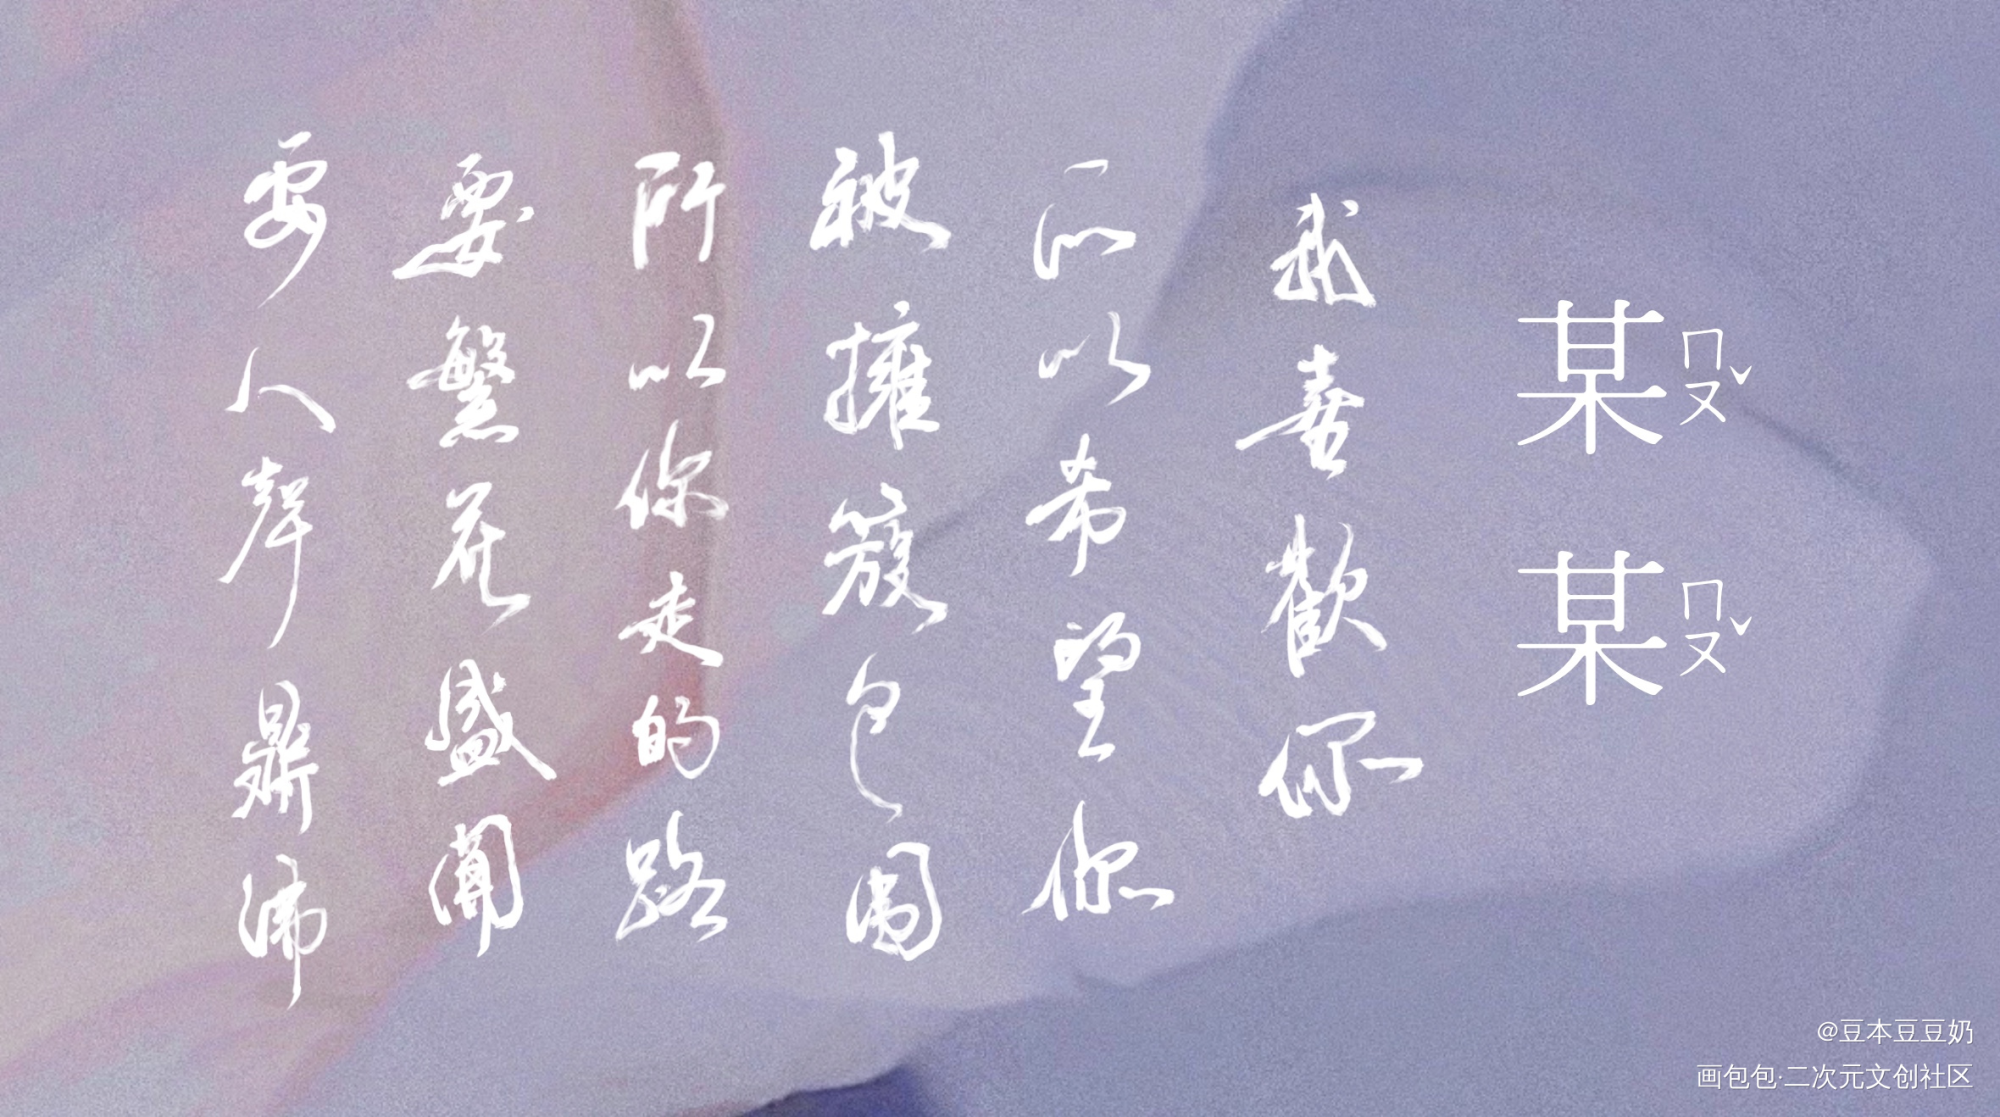 某ㄇㄡˇ某ㄇㄡˇ
我喜歡你
所以希望你
被擁簇包圍
所以你走的路
要繁花盛開
要人聲鼎沸
@豆本豆豆奶
画包包·二次元文创社区